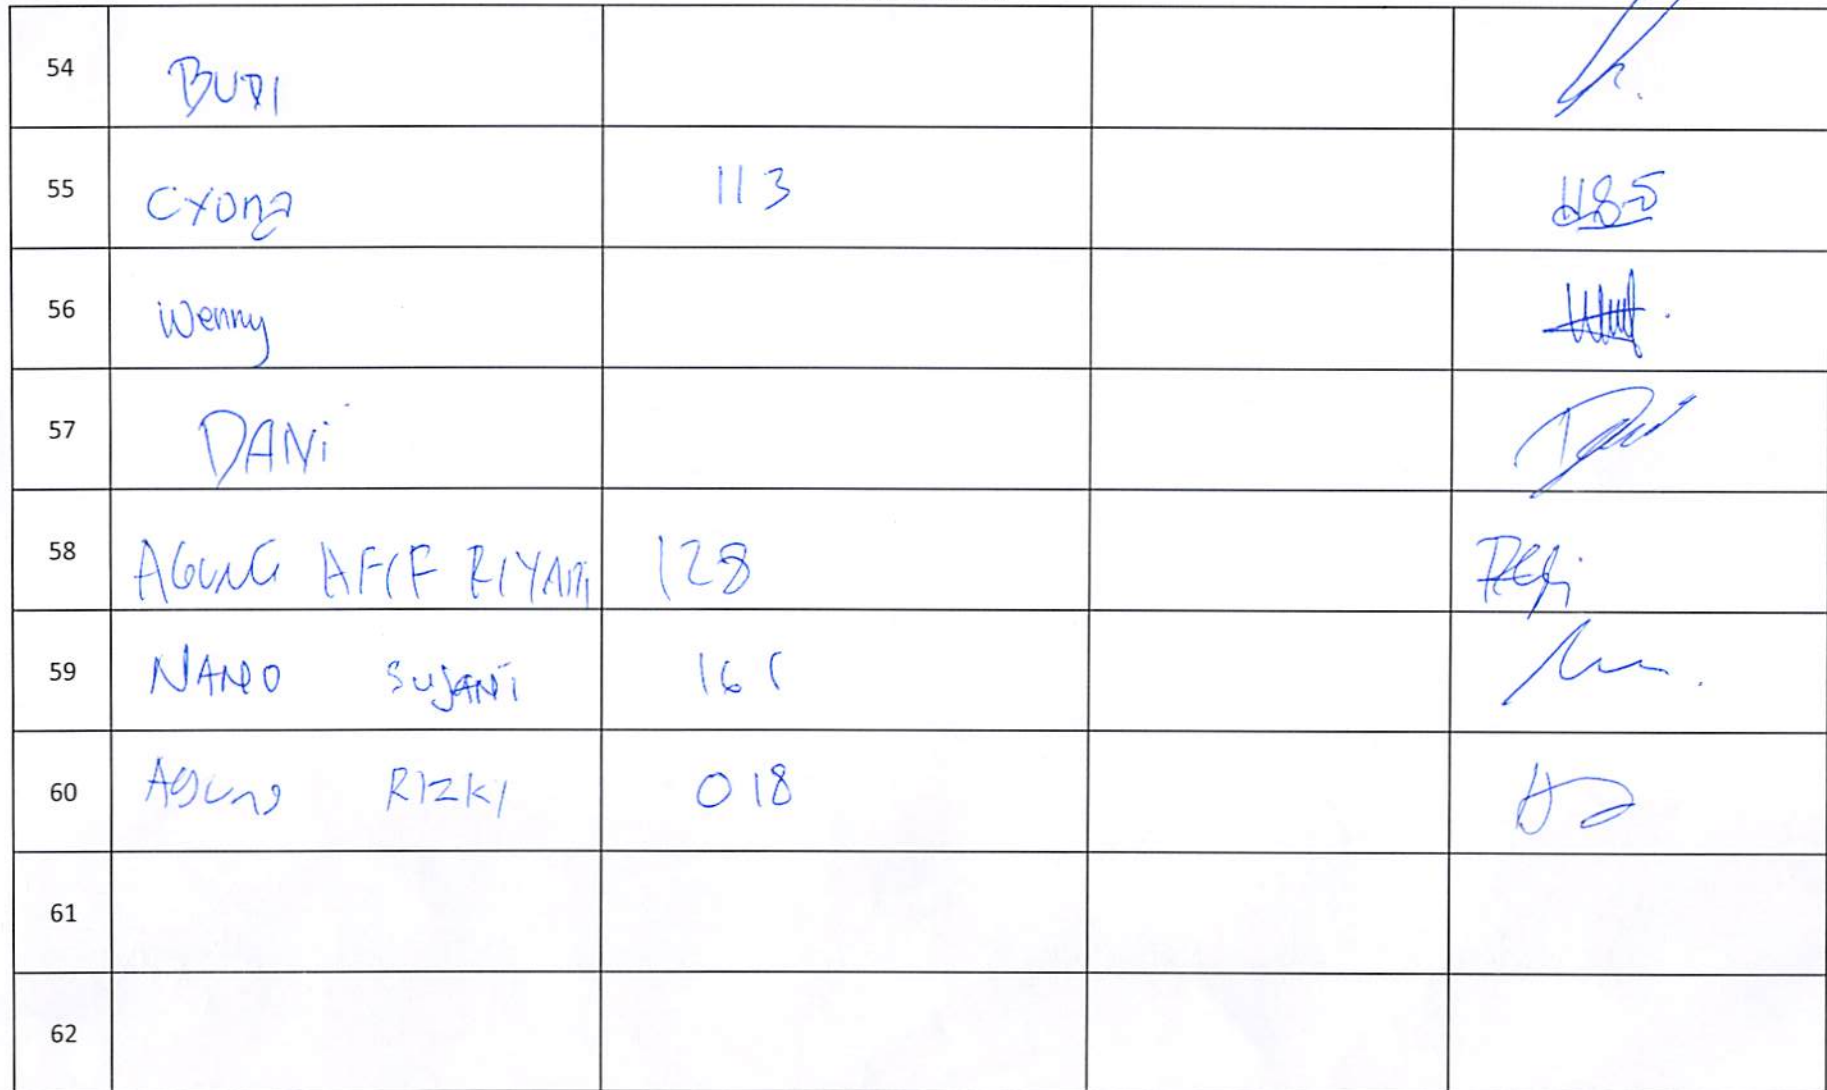 54 BUDI
55 Cyong 113
56 Wenny
57 DANi
58 AGUNG AFIF RIYADI 128
59 NANO SUJANi 161
60 AGUNG RIZKY 018
61
62